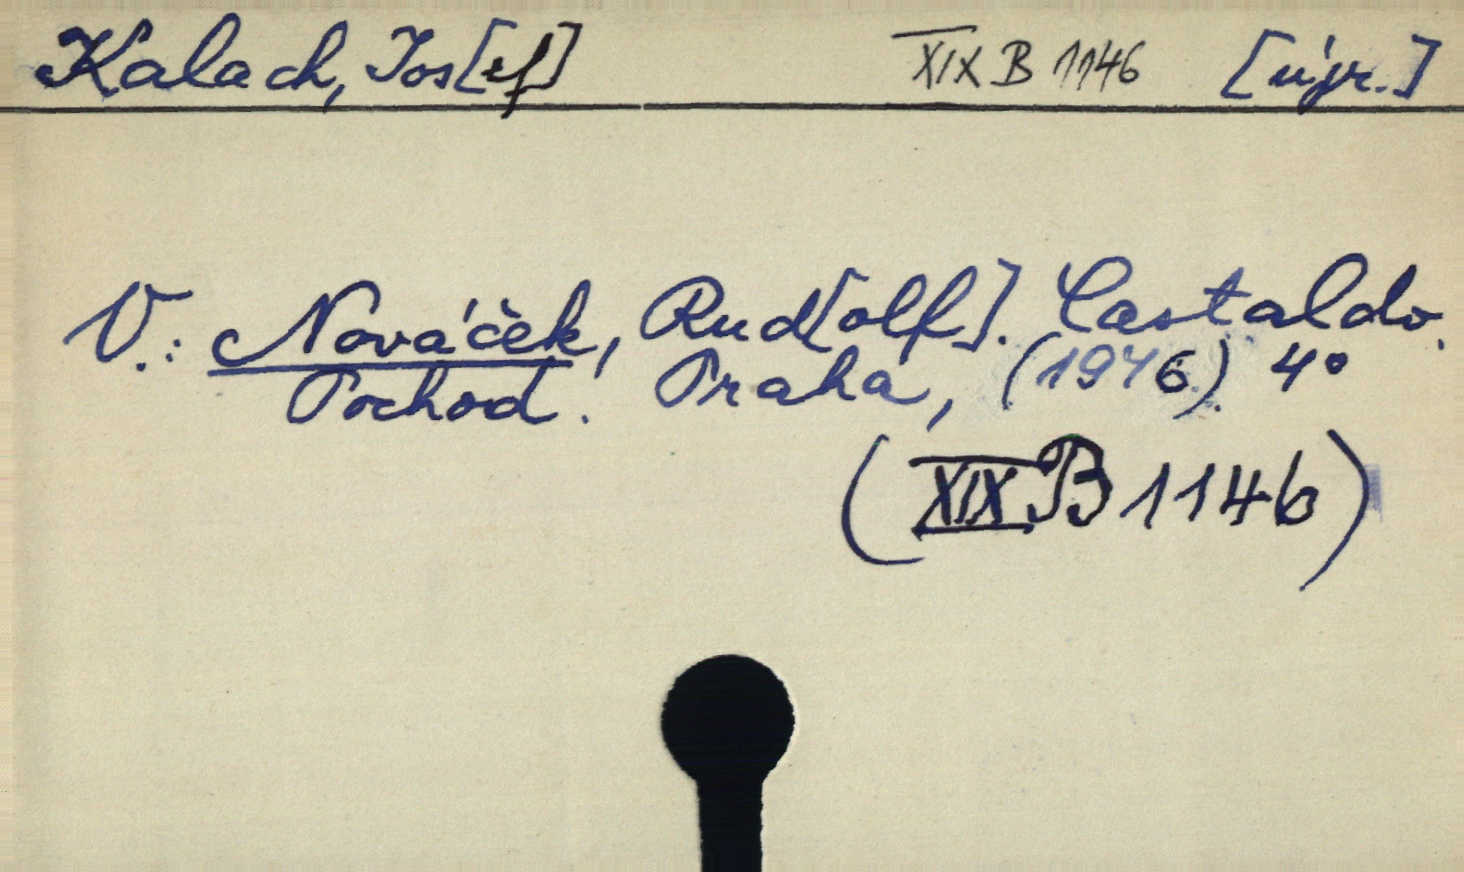 Kalach, Jos[ef] XIX B 1146 [úpr.]
V.: Nováček, Rud[olf]. Castaldo.
Pochod. Praha, (1946). 4°
(XIX B 1146)